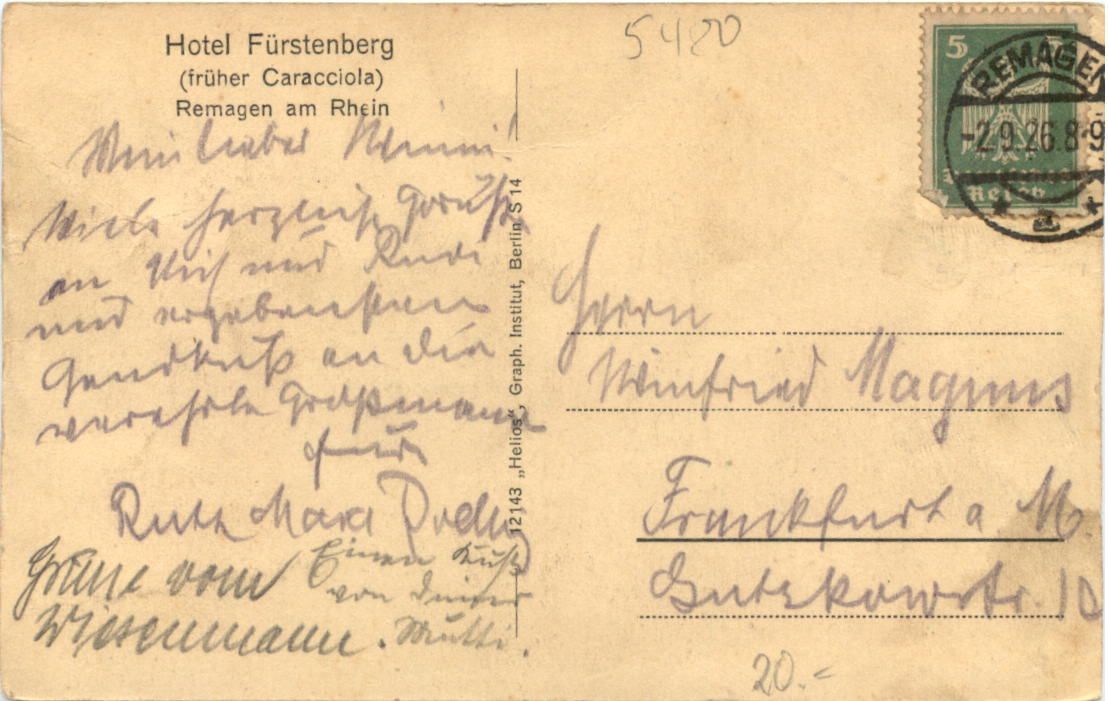 Hotel Fürstenberg
(früher Caracciola)
Remagen am Rhein
5420
5 5
REMAGEN
-2.9.26.8-9
a
Mein lieber Winni!
Viele herzliche Grüße
an Dich und Rudi
und ergebensten
Handkuß an die
verehrte Großmama
Ruth
Einen Kuß
Grüsse vom
von Deiner
Wiesenmann.
Mutti.
12143 „Helios“, Graph. Institut, Berlin S 14
Herrn
Winfried Magnus
Frankfurt a M.
Gutzkowstr. 10
20.-